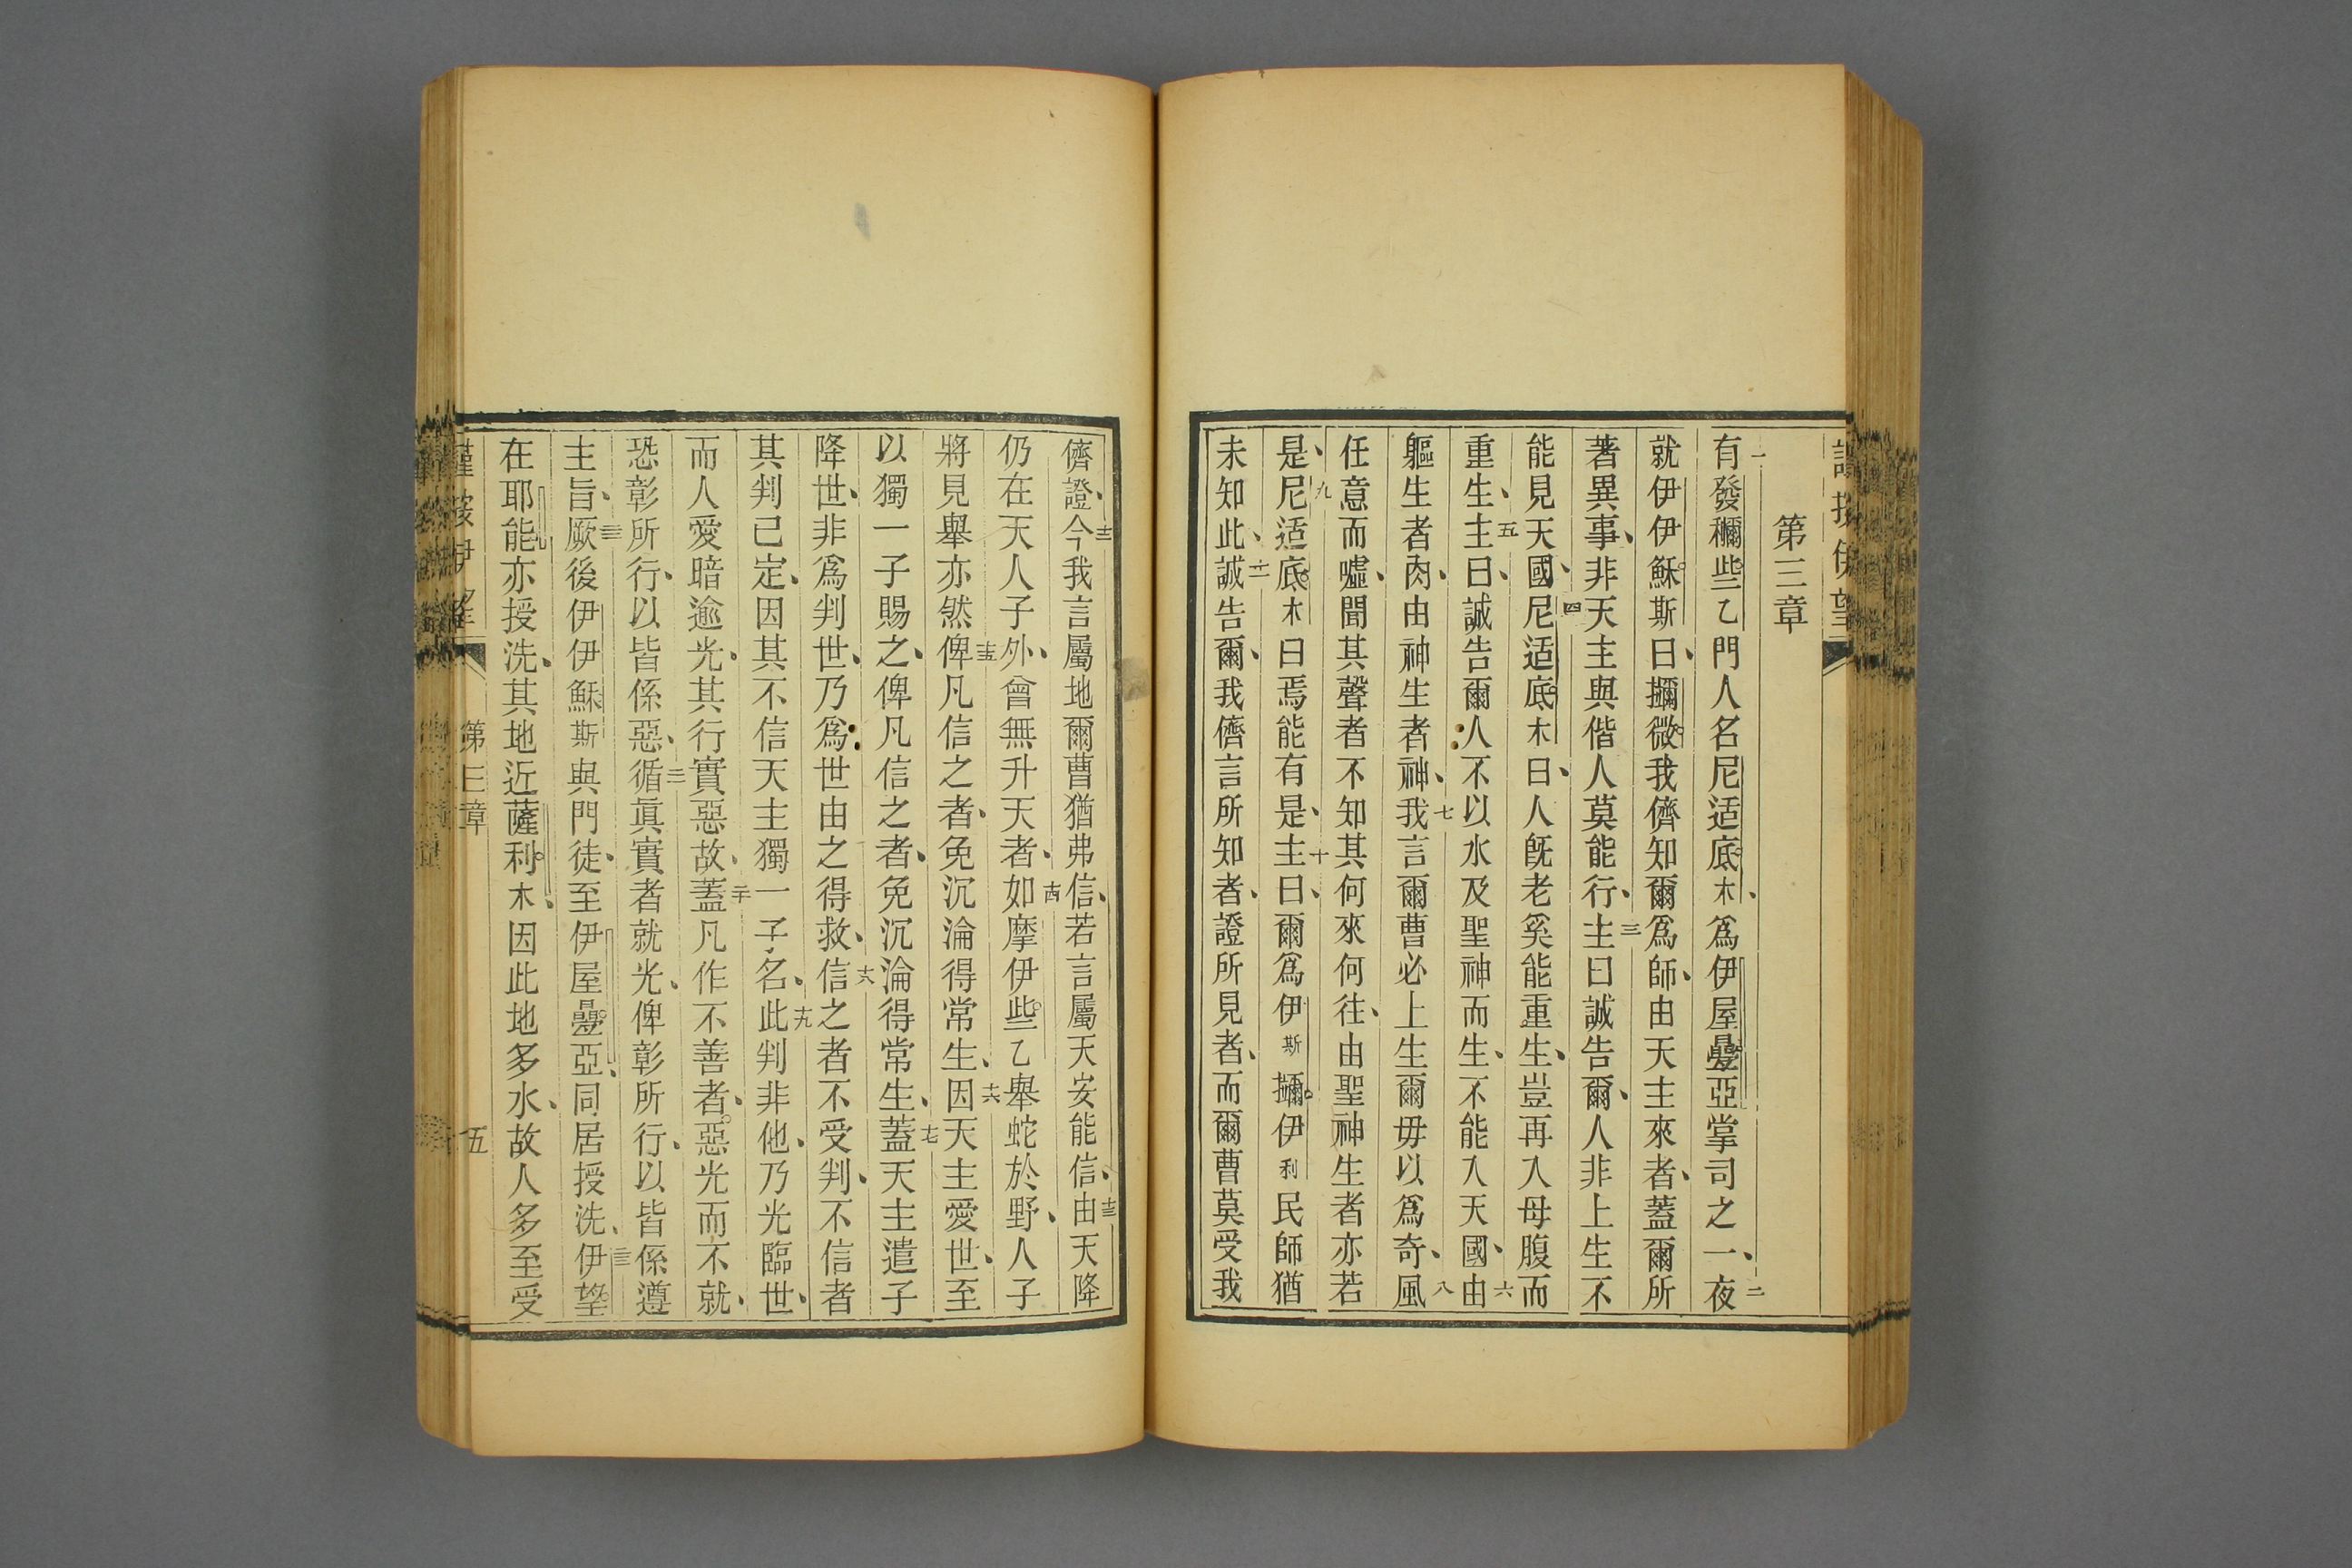 第三章
一有發穪些乙門人名尼适底木、爲伊屋疊亞掌司之一、二夜
就伊伊穌斯曰、攧微我儕知爾爲師、由天主來者、蓋爾所
著異事、非天主與偕人莫能行、三主曰誠告爾、人非上生不
能見天國、四尼适底木曰、人旣老奚能重生、豈再入母腹而
重生、五主曰、誠告爾人不以水及聖神而生、不能入天國、六由
軀生者肉、由神生者神、七我言爾曹必上生爾毋以爲奇、八風
任意而噓、聞其聲者不知其何來何往、由聖神生者亦若
是、九尼适底木曰焉能有是、十主曰、爾爲伊斯攧伊利民師猶
未知此、十一誠告爾、我儕言所知者、證所見者、而爾曹莫受我
儕證、十二今我言屬地爾曹猶弗信、若言屬天安能信、十三由天降
仍在天人子外、曾無升天者、十四如摩伊些乙舉蛇於野、人子
將見舉亦然十五俾凡信之者、免沉淪得常生、十六因天主愛世、至
以獨一子賜之、俾凡信之者、免沉淪得常生、十七蓋天主遣子
降世、非爲判世、乃爲世由之得救、十八信之者不受判、不信者
其判已定、因其不信天主獨一子名、十九此判非他、乃光臨世、
而人愛暗逾光、其行實惡故、二十蓋凡作不善者、惡光而不就、
恐彰所行、以皆係惡、二一循眞實者就光、俾彰所行、以皆係遵
主旨、二二厥後伊伊穌斯與門徒、至伊屋疊亞、同居授洗、二三伊望
在耶能亦授洗、其地近薩利木、因此地多水、故人多至受
第三章
五